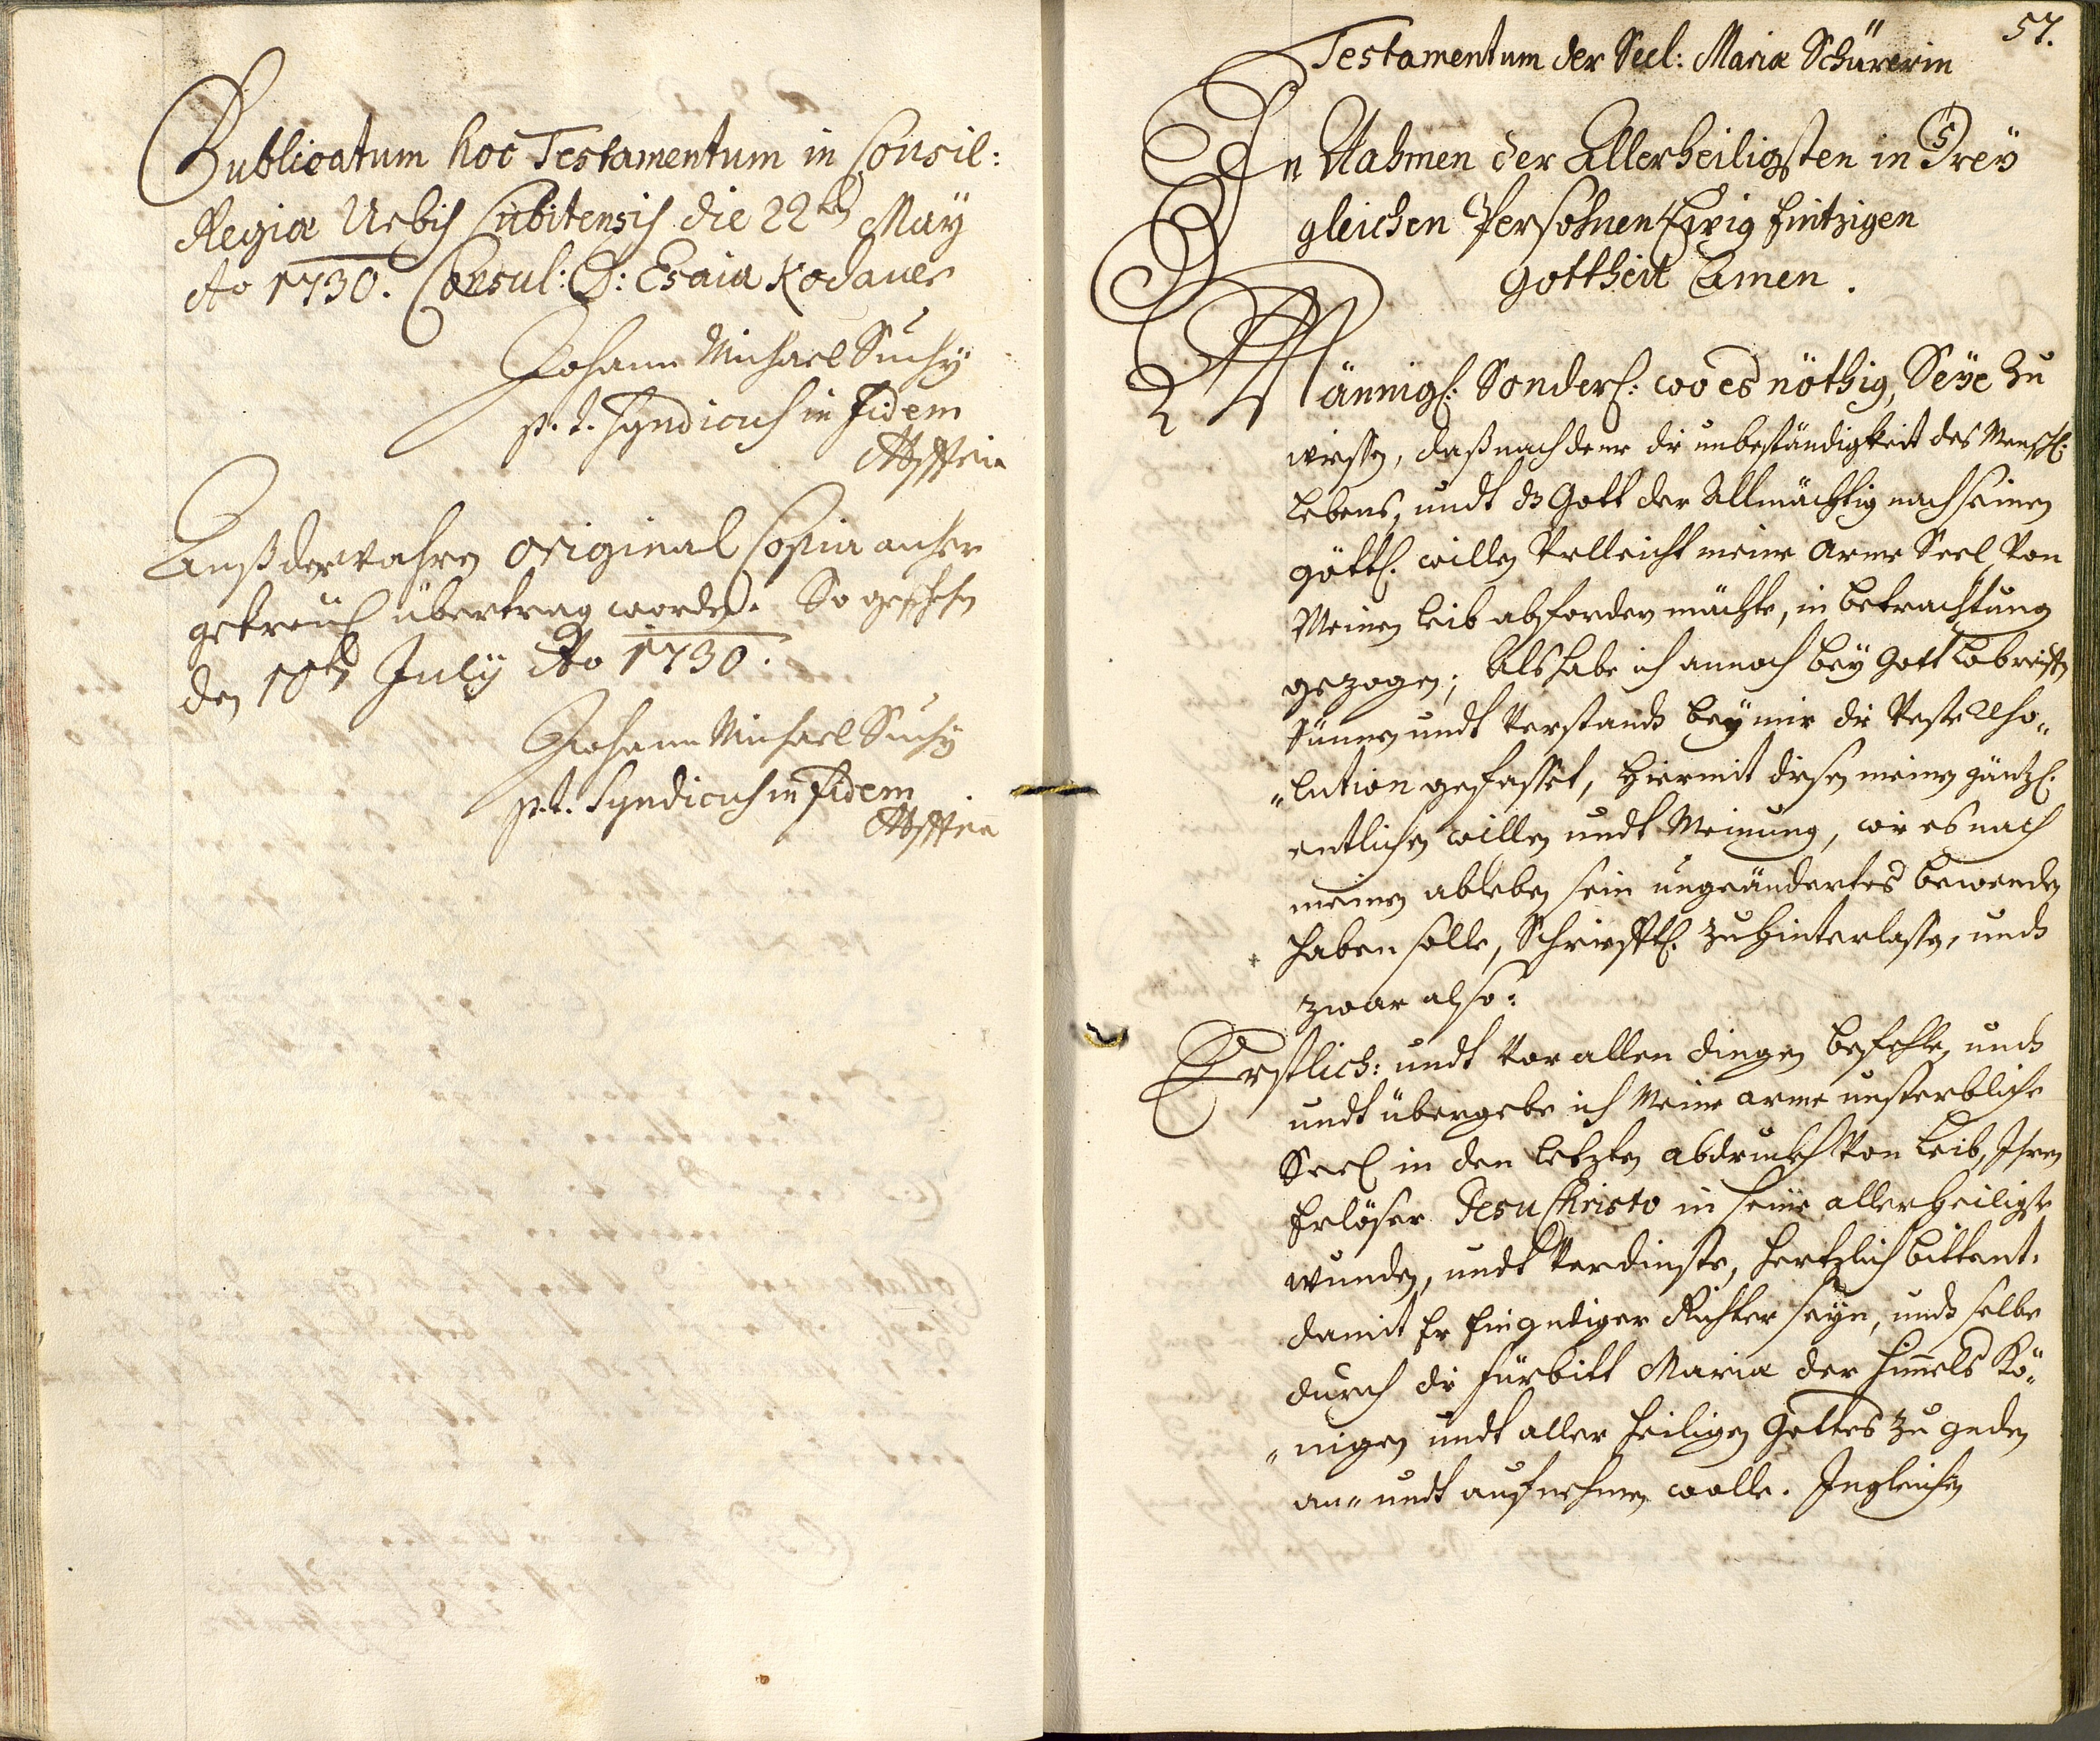 Publicatum hoc Testamentum in Consil:
Regiæ Urbis Cubitensis die 22ten May
Ao 1730. Consul: D: Esaia Kodauer
Johann Michael Suchÿ
p. t. Syndicus in Fidem
Auß der wahren Original Copia anhero
getreül übertrag worden. So geschehen
den 10ten Julÿ Ao 1730.
Johann Michael Suchÿ
p. t. Syndicus in Fidem
57.
Testamentum der Seel: Mariæ Schürerin
In Nahmen der Allerheiligsten in Dreÿ
gleichen Persohnen Ewig Eintzigen
Gottheit Amen.
Männigl: Sonderl: wo es nöthig, Seÿe Zu
wissen, daß nach deme die unbeständigkeit des Menschl:
Lebens, undt dz Gott der Allmächtig nach seinen
göttl: willen Velleicht meine Arme Seel von
Meinen leib abfordern mächte, in betrachtung
gezogen; Als habe ich annoch beÿ Gott Lob reiffen
Sünnen undt Verstandt beÿ mir die Veste Reso„
„lution gefasset, hiermit diesen meinen gäntzl:
entlichen willen undt Meinung, wie es nach
meinen ableben sein ungeändertes bewenden
haben solle, Schriefftl: zu hinterlassen, undt
zwar also:
Erstlich: undt vor allen dingen befehle, undt
undt übergebe ich Meine arme unsterbliche
Seel in den letzten abdruckh von Leib, Ihren
Erlöser Jesu Christo in seine allerheiligste
wunden, undt Verdinste, hertzlich bittent,
damit Er Ein gnediger Richter seÿn, undt selbe
durch die fürbitt Maria der Himmels Kö„
„nigen undt aller heiligen Gottes zu gnaden
an„ undt aufnehmen wolle. Ingleichen